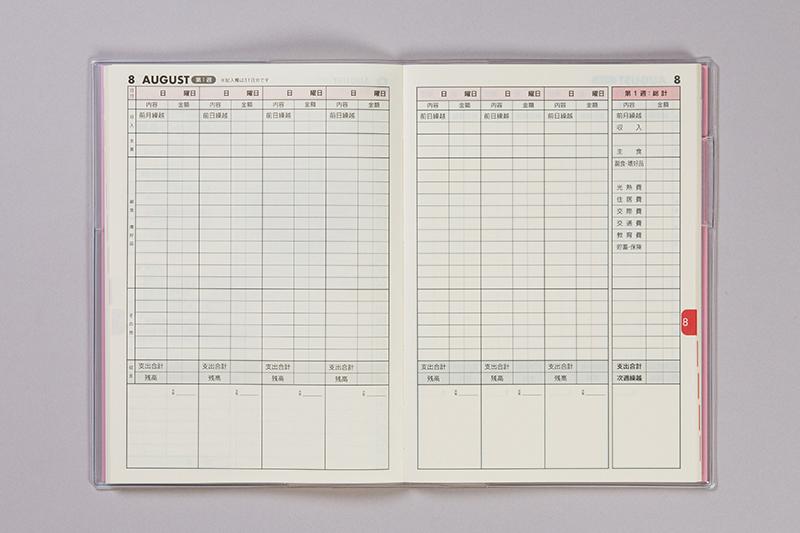 8 AUGUST 第1週 ※記入欄は31日分です
日付 日 曜日 日 曜日 日 曜日 日 曜日
内容 金額 内容 金額 内容 金額 内容 金額
収入 前月繰越 前日繰越 前日繰越 前日繰越
主食
副食・嗜好品
その他
支出合計 支出合計 支出合計 支出合計
残高 残高 残高 残高
8
日 曜日 日 曜日 日 曜日 第1週:総計
内容 金額 内容 金額 内容 金額 内容 金額
前日繰越 前日繰越 前日繰越 前月繰越
収入
主食
副食・嗜好品
光熱費
住居費
交際費
交通費
教育費
貯蓄・保険
8
支出合計 支出合計 支出合計 支出合計
残高 残高 残高 次週繰越